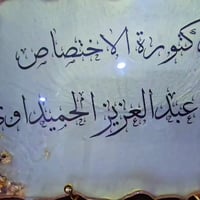 دكتورة الاختصاص
عبدالعزيز الحميداوي